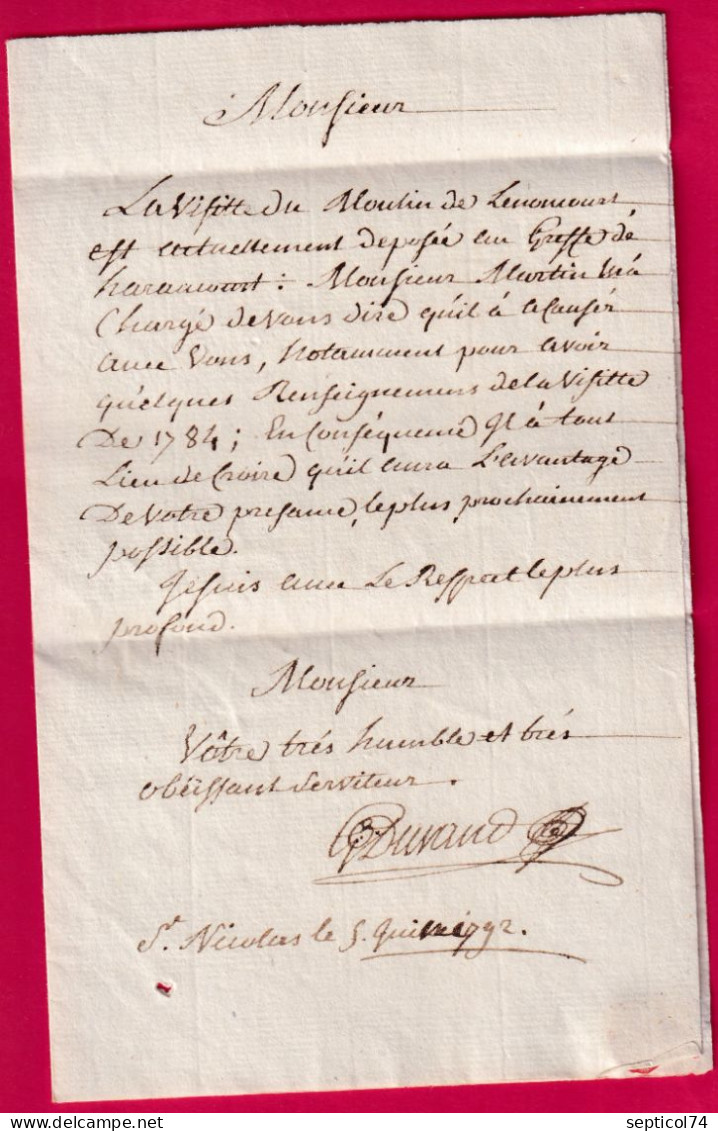 Monsieur
La Visitte du Moulin de Lenoncourt
est actuellement deposée au Greffe de
haraucourt : Monsieur Martin m'a
Chargé de vous dire qu'il à a causer
avec Vous, notamment pour avoir
quelques Renseignemens de la Visitte
De 1784; En Conséquence Il à tout
Lieu de Croire qu'il aura L'avantage
De votre presance, le plus prochainement
possible.
Je suis avec Le Respect le plus
profond.
Monsieur
Vôtre trés humble et trés
obéissant Serviteur.
Durand
St. Nicolas le 5. 1792.
septicol74